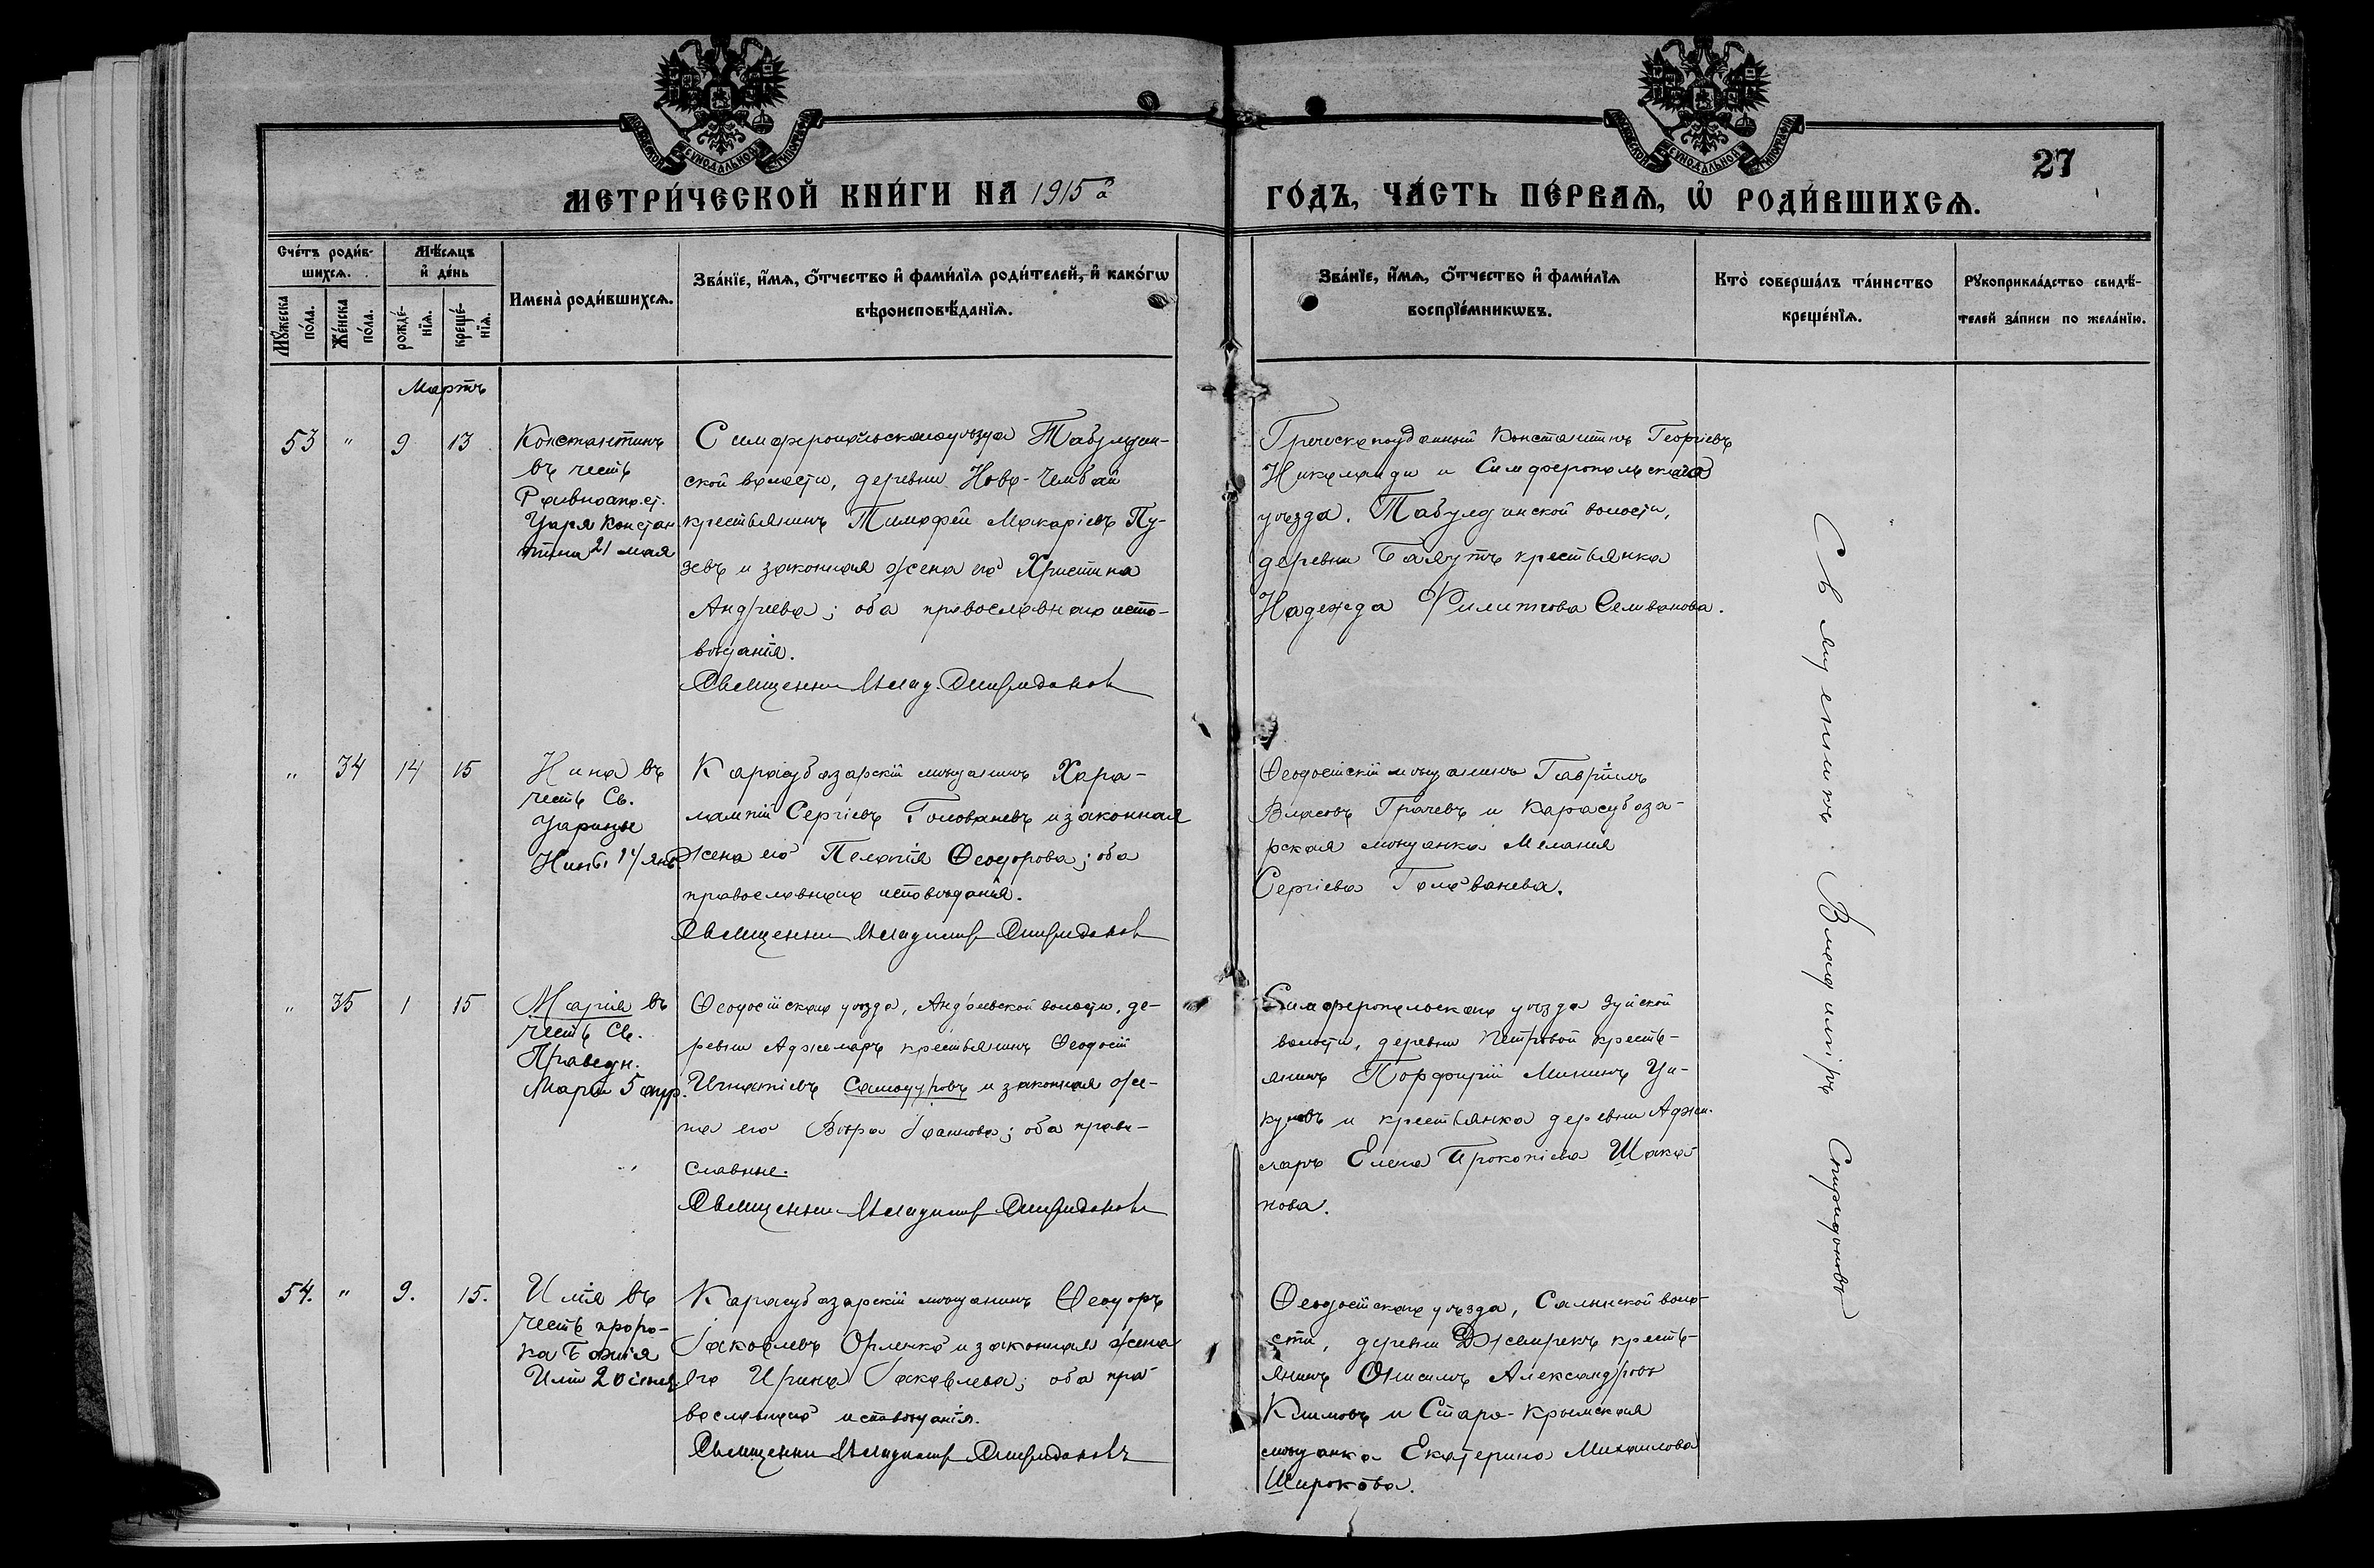 МЕТРИ́ЧЕСКОЙ КНИ́ГИ НА 1915й
ГО́ДЪ, ЧА́СТЬ ПЕ́РВАѦ, Ѡ҆ РОДИ́ВШИХСѦ.
27
Сче́тъ роди́в-
шихсѧ.
Мѣ́сѧцъ
и҆ де́нь
Мꙋ́жеска
по́ла.
Же́нска
по́ла.
рожде́-
нїѧ.
креще́-
нїѧ.
Имена̀ роди́вшихсѧ.
Зва́нїе, и҆́мѧ, ѻ҆́тчество и҆ фами́лїѧ роди́телей, и҆ како́гѡ
вѣроисповѣ́данїѧ.
Зва́нїе, и҆́мѧ, ѻ҆́тчество и҆ фами́лїѧ
воспрїе́мникѡвъ.
Кто̀ соверша́лъ та́инство
креще́нїѧ.
Рꙋкоприкла́дство свидѣ́-
телей за́писи по жела́нїю.
Мартъ
53 " 9 13
Константинъ
въ честь
Равноапост.
Царя Констан
тина 21 мая
Симферопольскаго уѣзда Табулдин-
ской волости, деревни Ново-Чембай
крестьянинъ Тимофей Макаріевъ Пу-
зевъ и законная жена его Христина
Андреева; оба православнаго испо-
вѣданія.
Священник Влад. Спиридонов
Греческоподданный Константинъ Георгіевъ
Николаиди и Симферопольскаго
уѣзда, Табулдинской волости,
деревни Баяутъ крестьянка
Надежда Филиппова Селиванова.
" 34 14 15
Нина въ
честь Св.
Царицы
Нины 14 янв.
Карасубазарскій мѣщанинъ Хара-
лампій Сергіевъ Голованевъ и законная
жена его Пелагія Ѳеодорова; оба
православнаго исповѣданія.
Священник Владимир Спиридонов
Ѳеодосійскій мѣщанинъ Гавріилъ
Власовъ Грачевъ и Карасубаза-
рская мѣщанка Меланія
Сергіева Голованева.
" 35 1 15
Марія въ
честь Св.
Праведн.
Маріи 5 апр.
Ѳеодосійскаго уѣзда, Андреевской волости, де-
ревни Аджеларъ крестьянинъ Ѳеодосій
Игнатіевъ Самодуровъ и законная же-
на его Вѣра Іоаннова; оба право-
славные.
Священник Владимир Спиридонов
Симферопольскаго уѣзда Зуйской
волости, деревни Петровой кресть-
янинъ Порфирій Мининъ Цу-
кановъ и крестьянка деревни Адже-
ларъ Елена Прокопіева Шака-
нова.
54. " 9. 15.
Илія въ
честь проро-
ка Божія
Иліи 20 іюля
Карасубазарскій мѣщанинъ Ѳеодоръ
Іаковлевъ Орленко и законная жена
его Ирина Іаковлева; оба пра-
вославнаго исповѣданія.
Священник Владимир Спиридоновъ
Ѳеодосійскаго уѣзда, Салынской воло-
сти, деревни Джепарекъ кресть-
янинъ Онисимъ Александровъ
Климовъ и Старо-Крымская
мѣщанка Екатерина Михаилова
Широкова.
Священникъ Владиміръ Спиридоновъ